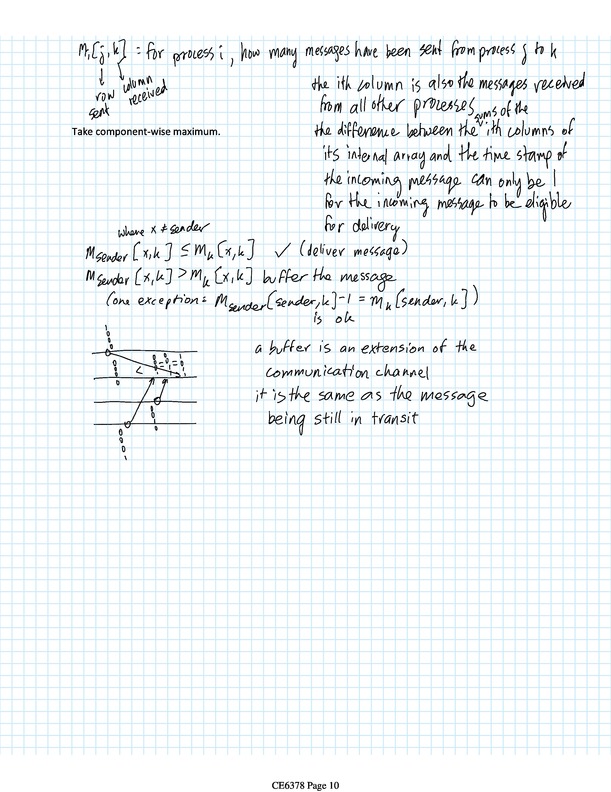 M_i[j,k] = for process i, how many messages have been sent from process j to k
row column
sent received
the ith column is also the messages received
from all other processes
Take component-wise maximum.
sums of the
the difference between the ith columns of
its internal array and the time stamp of
the incoming message can only be 1
for the incoming message to be eligible
for delivery
where x ≠ sender
M_sender[x,k] ≤ M_k[x,k] ✓ (deliver message)
M_sender[x,k] > M_k[x,k] buffer the message
(one exception: M_sender[sender,k]-1 = M_k[sender,k])
is ok
a buffer is an extension of the
communication channel
it is the same as the message
being still in transit
CE6378 Page 10